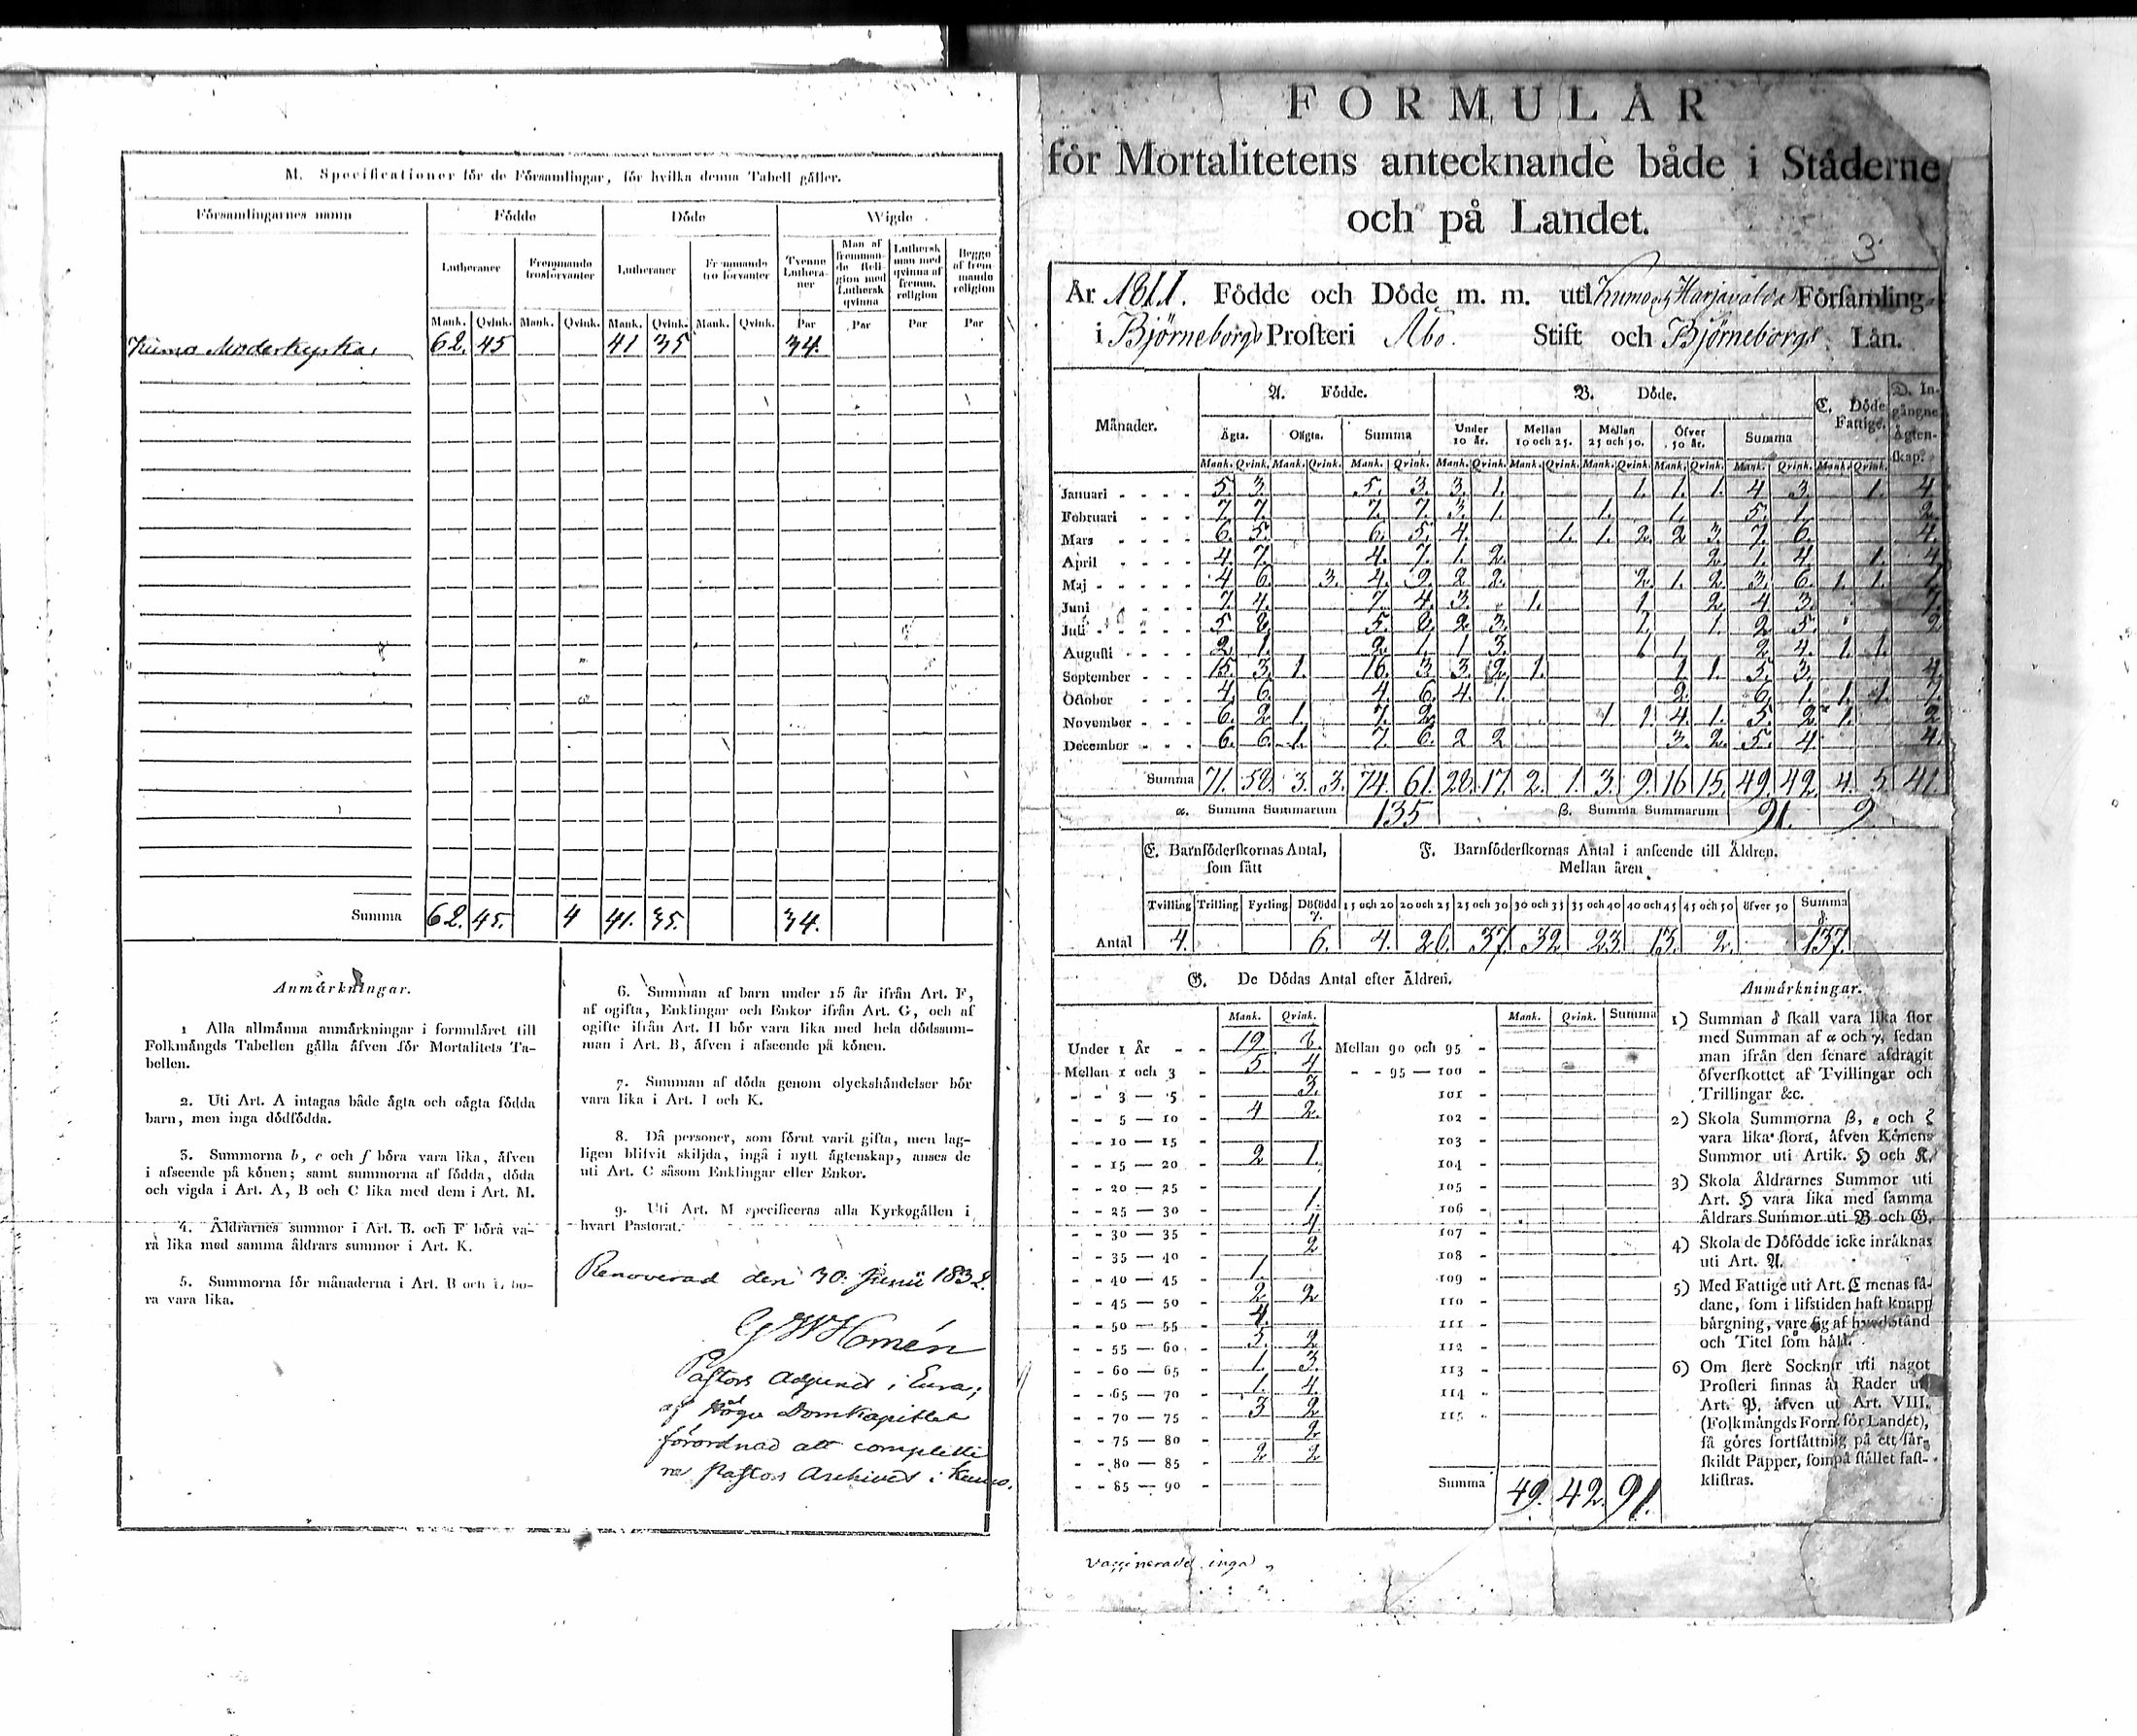 M. Specificationer för de Församlingar, för hvilka denna Tabell gäller.
Församlingarnes namn Födde Döde Wigde
Lutheraner Fremmande trosförvanter Lutheraner Fremmande trosförvanter Tvenne Lutheraner Man af fremmande Religion med Luthersk qvinna Luthersk man med qvinna af fremm. religion Begge af fremmande religion
Mank. Qvink. Mank. Qvink. Mank. Qvink. Mank. Qvink. Par Par Par Par
Kumo Moderkyrka 62. 45 41 35 34.
Summa 62. 45. 4 41. 35. 34.
Anmärkningar.
1 Alla allmänna anmärkningar i formuläret till
Folkmängds Tabellen gälla äfven för Mortalitets Ta-
bellen.
2. Uti Art. A intagas både ägta och oägta födda
barn, men inga dödfödda.
3. Summorna b, e och f böra vara lika, äfven
i afseende på könen; samt summorna af födda, döda
och vigda i Art. A, B och C lika med dem i Art. M.
4. Åldrarnes summor i Art. B. och F böra va-
ra lika med samma åldrars summor i Art. K.
5. Summorna för månaderna i Art. B och L bö-
ra vara lika.
6. Summan af barn under 15 år ifrån Art. F,
af ogifta, Enklingar och Enkor ifrån Art. G, och af
ogifte ifrån Art. H bör vara lika med hela dödssum-
man i Art. B, äfven i afseende på könen.
7. Summan af döda genom olyckshändelser bör
vara lika i Art. I och K.
8. Då personer, som förut varit gifta, men lag-
ligen blifvit skiljda, ingå i nytt ägtenskap, anses de
uti Art. C såsom Enklingar eller Enkor.
9. Uti Art. M specificeras alla Kyrkogällen i
hvart Pastorat.
Renoverad den 30. Junii 1832.
G W Homén
Pastors Adjunct i Eura,
af Höga Domkapitlet
förordnad att completti
ra Pastors Archivet i Kumo.
FORMULÄR
för Mortalitetens antecknande både i Städerne
och på Landet.
3.
År 1811. Födde och Döde m. m. uti Kumo och Harjavalda Församling
i Björneborgs Prosteri Åbo. Stift och Björneborgs Län.
Månader. A. Födde. B. Döde. C. Döde Fattige. D. Ingångne Ägtenskap.
Ägta. Oägta. Summa Under 10 år. Mellan 10 och 25. Mellan 25 och 50. Öfver 50 år. Summa
Mank. Qvink. Mank. Qvink. Mank. Qvink. Mank. Qvink. Mank. Qvink. Mank. Qvink. Mank. Qvink. Mank. Qvink. Mank. Qvink.
Januari 5. 3. 5. 3. 3. 1. 1. 1. 1. 4 3. 1. 4
Februari 7. 7. 7. 7. 3. 1. 1. 1. 5. 1. 2.
Mars 6. 5. 6. 5. 4. 1. 1. 2. 2 3. 7. 6. 4.
April 4. 7. 4. 7. 1. 2. 2. 1. 4. 1. 4
Maj 4 6. 3. 4. 9. 2 2. 2. 1. 2. 3. 6. 1. 1. 1.
Juni 7. 4. 7. 4. 3. 1. 1. 2. 4. 3. 7.
Juli 5. 8. 5. 8. 2. 3. 1. 1. 2 5. 2
Augusti 2. 1. 2. 1. 1 3. 1. 1. 2 4. 1. 1.
September 15. 3. 1. 16. 3. 3. 2. 1. 1. 1. 5. 3. 4.
October 4. 6. 4. 6. 4. 1. 2. 6. 1. 1. 1. 7.
November 6. 2. 1. 7. 2. 1. 1. 4. 1. 5. 2. 1. 2
December 6. 6. 1. 7. 6. 2 2 3. 2. 5. 4. 4.
Summa 71. 58. 3. 3. 74. 61. 28. 17. 2. 1. 3. 9. 16 15. 49. 42. 4. 5. 41.
α. Summa Summarum 135 β. Summa Summarum 91. 9
E. Barnföderskornas Antal, som fått F. Barnföderskornas Antal i anseende till Åldren. Mellan åren
Tvilling Trilling Fyrling Döfödd γ. 15 och 20 20 och 25 25 och 30 30 och 35 35 och 40 40 och 45 45 och 50 öfver 50 Summa δ.
Antal 4. 6. 4. 26. 37. 32 23. 13. 2. 137.
G. De Dödas Antal efter Åldren.
Mank. Qvink. Mank. Qvink. Summa
Under 1 År 19 8. Mellan 90 och 95
Mellan 1 och 3 5. 4 95 — 100
3 — 5 3. 101
5 — 10 4 2. 102
10 — 15 103
15 — 20 2 1. 104
20 — 25 105
25 — 30 1. 106
30 — 35 4. 107
35 — 40 2 108
40 — 45 1. 109
45 — 50 2 2 110
50 — 55 4. 111
55 — 60 5. 2 112
60 — 65 1. 3. 113
65 — 70 1. 4. 114
70 — 75 3 2 115
75 — 80 2.
80 — 85 2 2
85 — 90 Summa 49. 42. 91.
Anmärkningar.
1) Summan δ skall vara lika stor
med Summan af α och γ, sedan
man ifrån den senare afdragit
öfverskottet af Tvillingar och
Trillingar &c.
2) Skola Summorna β, ε och ζ
vara lika stora, äfven Könens
Summor uti Artik. H och K.
3) Skola Åldrarnes Summor uti
Art. H vara lika med samma
Åldrars Summor uti B och G.
4) Skola de Döfödde icke inräknas
uti Art. A.
5) Med Fattige uti Art. C menas så-
dane, som i lifstiden haft knapp
bärgning, vare sig af hvad Stånd
och Titel som hälst.
6) Om flere Socknar uti något
Prosteri finnas än Rader uti
Art. P. äfven uti Art. VIII.
(Folkmängds Form. för Landet),
så göres fortsättning på ett sär-
skildt Papper, som på stället fast-
klistras.
Vaccinerade inga